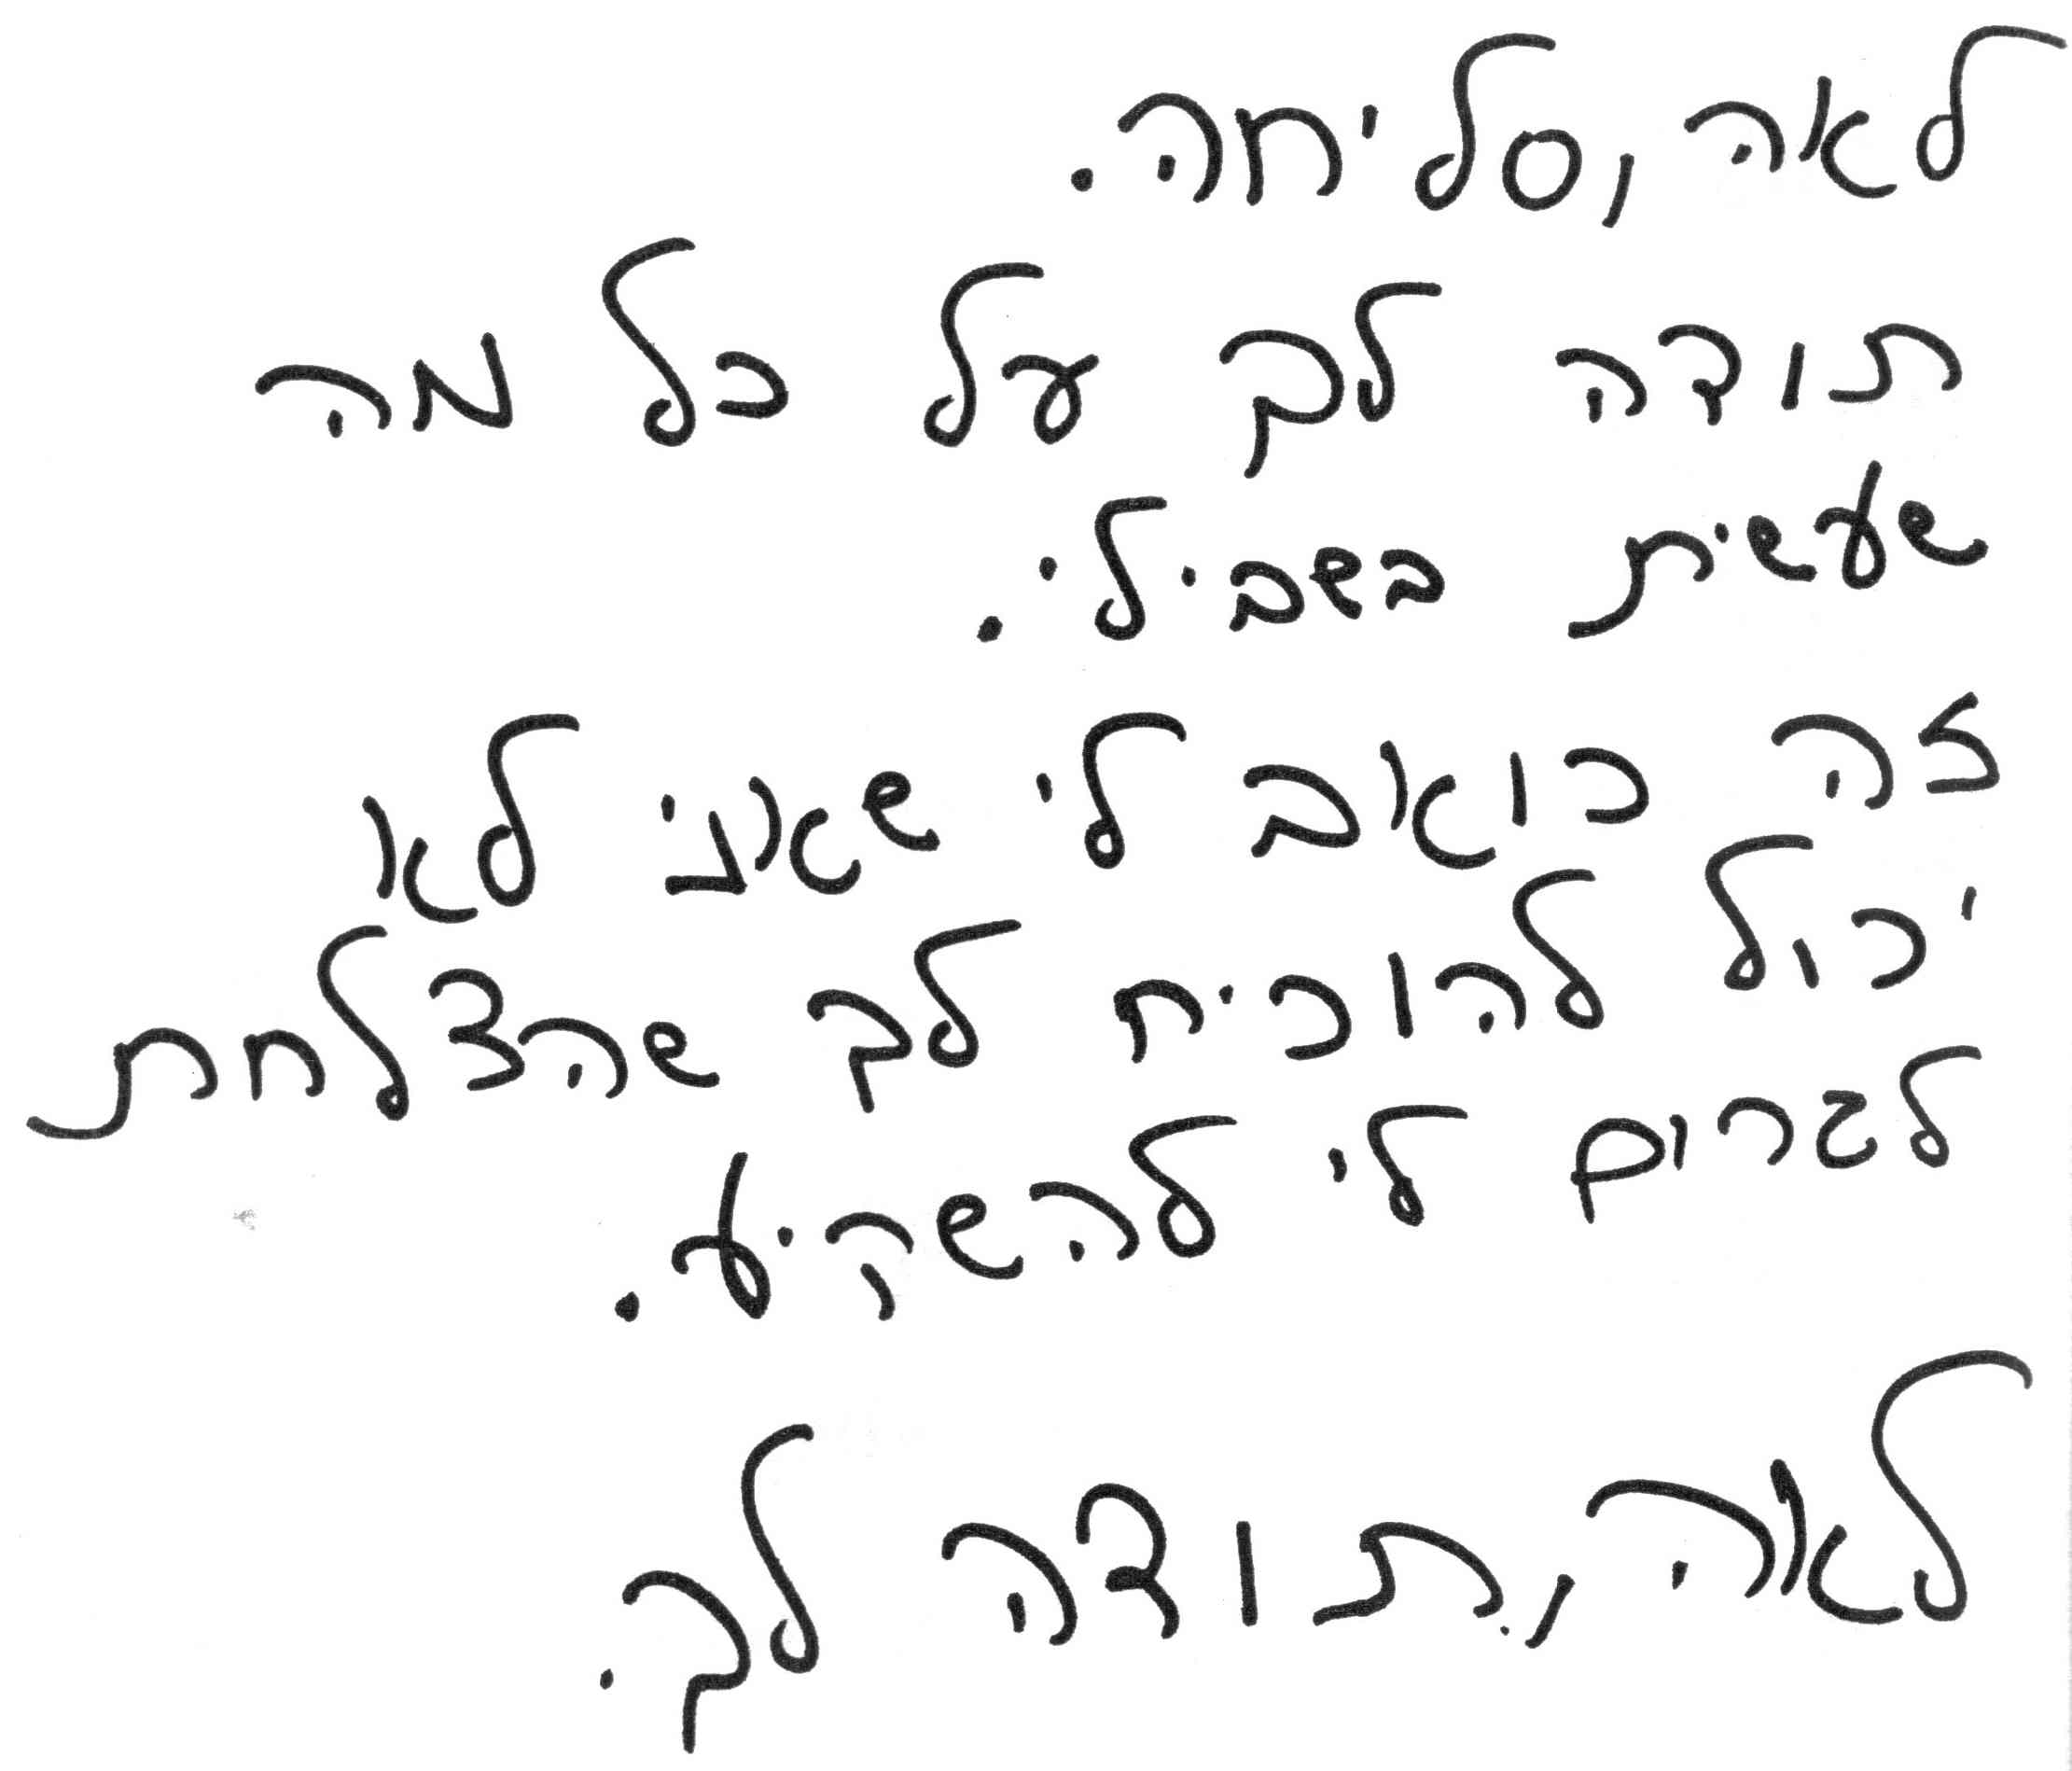 לאה, סליחה.
תודה לך על כל מה
שעשית בשבילי.
זה כואב לי שאני לא
יכול להוכיח לך שהצלחת
לגרום לי להשקיע.
לאה, תודה לך.